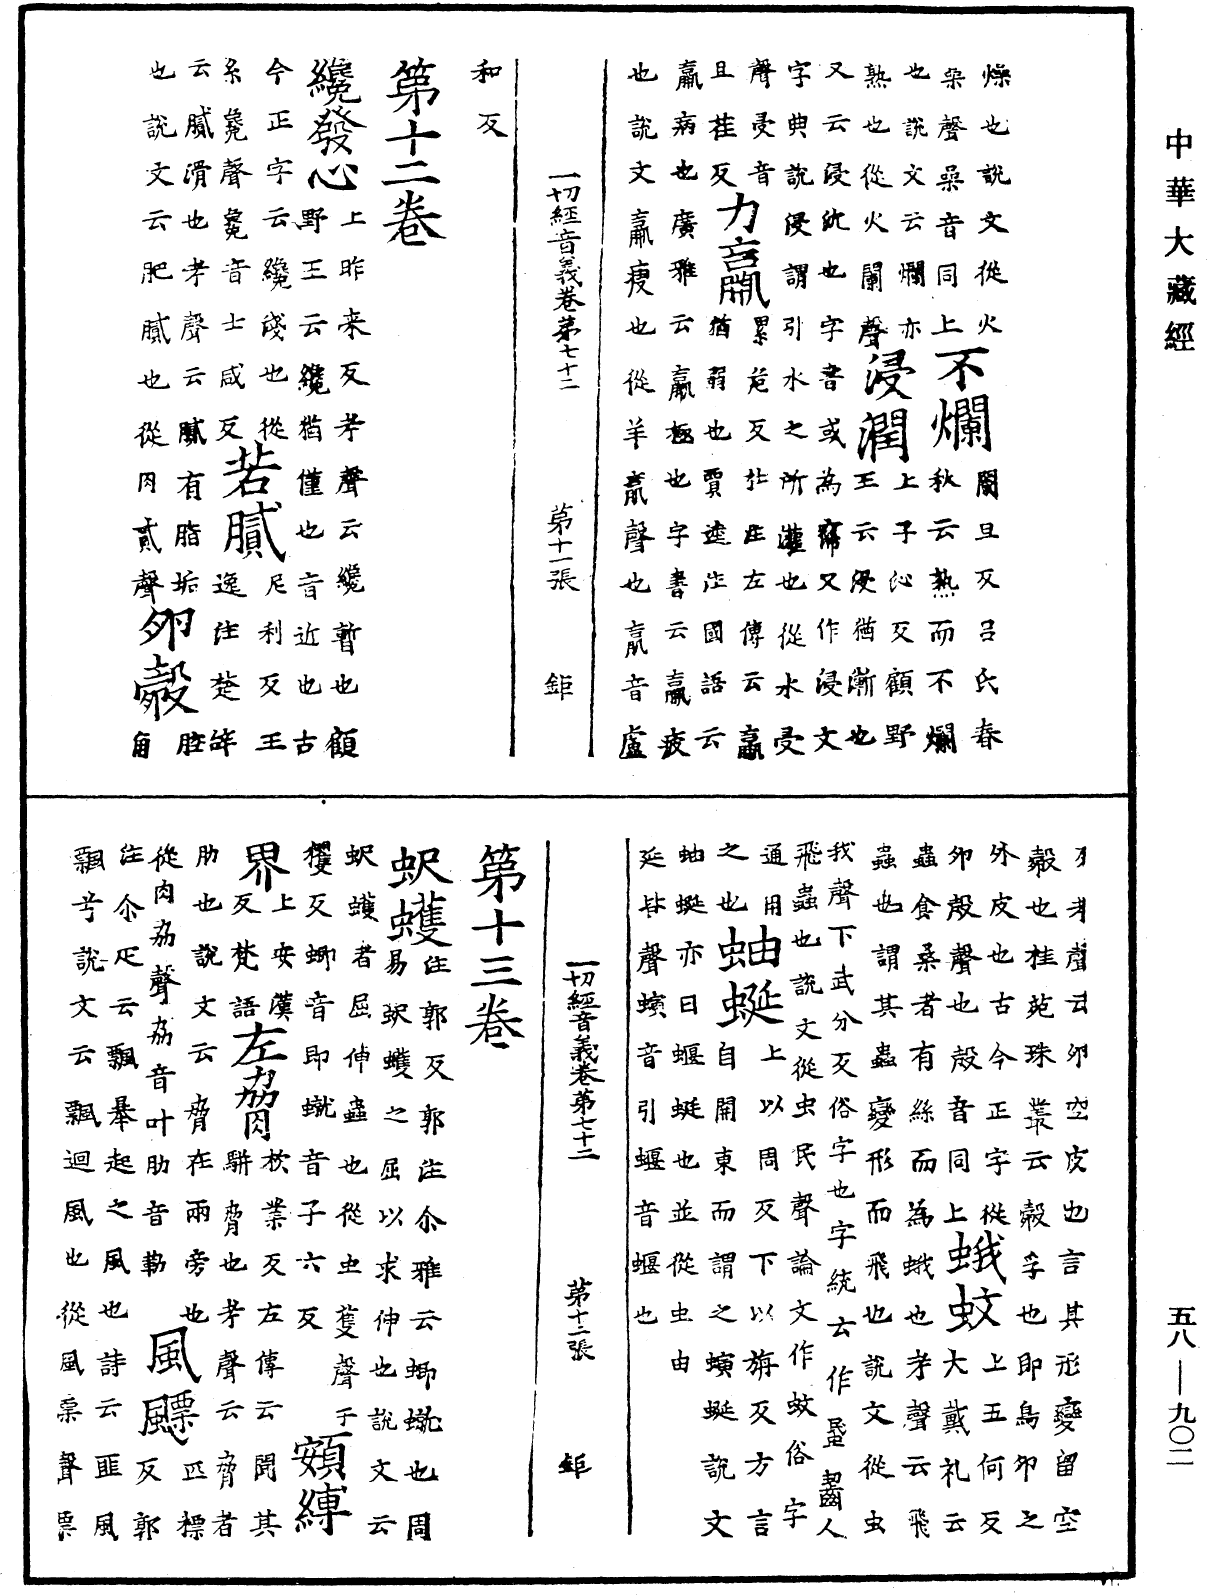 中華大藏經
燥也說文從火
桒聲桒音同上不爛闌旦反呂氏春
秋云熟而不爛
也說文云爛亦
熟也從火闌聲浸潤上子沁反顧野
王云浸猶漸也
又云浸沈也字書或為寖又作浸文
字典說浸謂引水之所灌也從水㑴
聲㑴音
且荏反力羸累危反杜注左傳云羸
猶弱也賈逵注國語云
羸病也廣雅云羸極也字書云羸疲
也說文羸瘦也從羊𣎆聲也𣎆音盧
一切經音義卷第七十二　第十一張　鉅
和反
第十二卷
纔發心上昨來反考聲云纔暫也顧
野王云纔猶僅也音近也古
今正字云纔淺也從
糸毚聲毚音士咸反若膩尼利反王
逸注楚辞
云膩滑也考聲云膩有脂垢腔
也說文云肥膩也從肉貳聲卵㲉角
反考聲云卵空皮也言其形變留空
㲉也桂苑珠叢云㲉孚也即鳥卵之
外皮也古今正字從
卵㱿聲也㱿音同上蛾蚊上五何反
大戴礼云
蟲食桑者有絲而為蛾也考聲云飛
蟲也謂其蟲變形而飛也說文從虫
我聲下武分反俗字也字統云作䘇齧人
飛蟲也說文從虫民聲論文作蚊俗字
通用
之也蚰蜒上以周反下以旃反方言
自開東而謂之螾蜒說文
蚰蜒亦曰蝘蜓也並從虫由
延皆聲螾音引蝘音蝘也
一切經音義卷第七十二　第十二張　鉅
第十三卷
蚇蠖注郭反郭注尒雅云蝍蝛也周
易蚇蠖之屈以求伸也說文云
蚇蠖者屈伸蟲也從虫蒦聲于
玃反蝍音即蝛音子六反頞縛
上安漢
界反梵語左脅杴業反左傳云聞其
駢脅也考聲云脅者
肋也說文云脅在兩旁也
從肉劦聲劦音叶肋音勒風飄匹標
反郭
注尒疋云飄暴起之風也詩云匪風
飄兮說文云飄迴風也從風票聲票
五八—九〇二